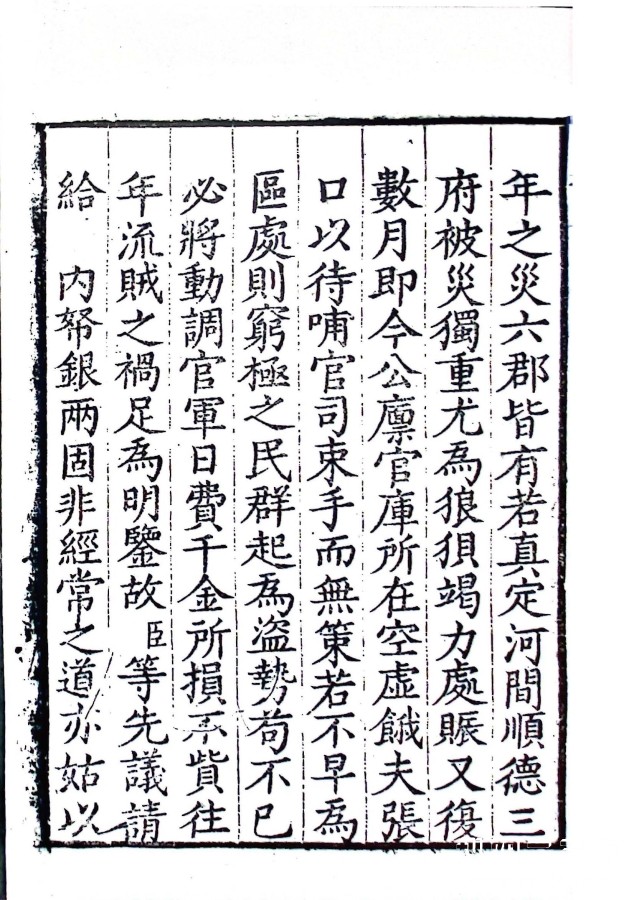 年之災六郡皆有若真定河間順德三
府被災獨重尤為狼狽竭力處賑又復
數月即今公廪官庫所在空虛餓夫張
口以待哺官司束手而無策若不早為
區處則窮極之民群起為盜勢苟不已
必將動調官軍日費千金所損不貲往
年流賊之禍足為明鑒故臣等先議請
給　內帑銀兩固非經常之道亦姑以